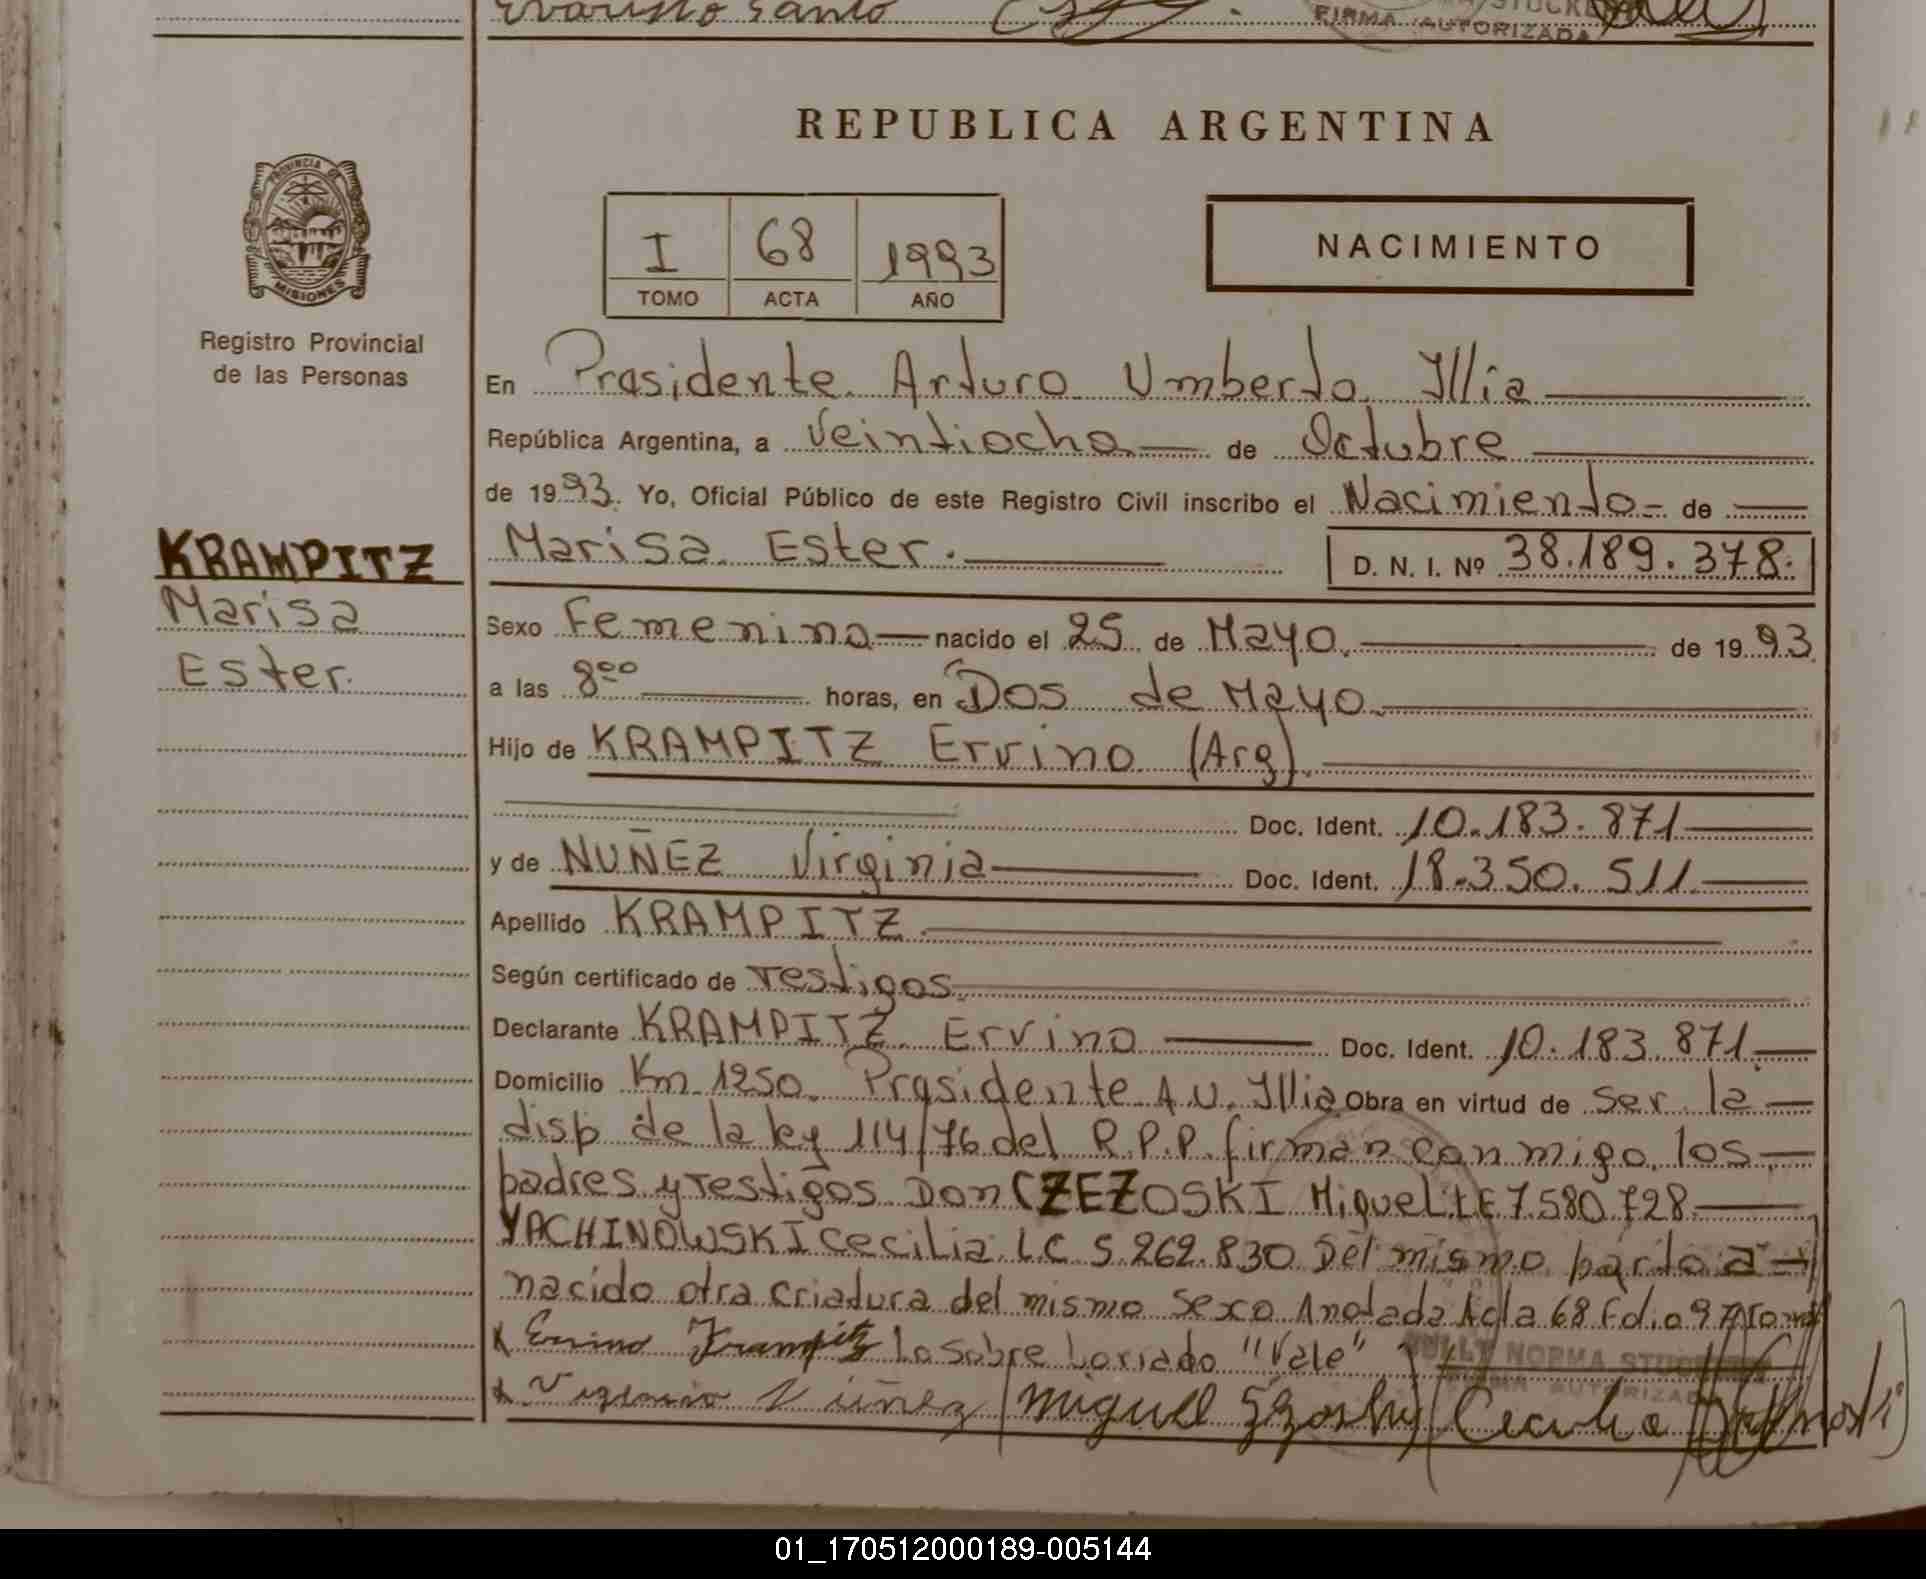 Evaristo Santo
FIRMA AUTORIZADA
REPUBLICA ARGENTINA
PROVINCIA DE
MISIONES
I 68 1993
TOMO ACTA AÑO
NACIMIENTO
Registro Provincial
de las Personas
En Presidente Arturo Umberto Illia
República Argentina, a Veintiocho de Octubre
de 1993. Yo, Oficial Público de este Registro Civil inscribo el Nacimiento de
KRAMPITZ
Marisa
Ester.
Marisa Ester. D. N. I. Nº 38.189.378.
Sexo Femenino nacido el 25 de Mayo de 1993
a las 8ºº horas, en Dos de Mayo
Hijo de KRAMPITZ Ervino (Arg).
Doc. Ident. 10.183.871
y de NUÑEZ Virginia Doc. Ident. 18.350.511
Apellido KRAMPITZ.
Según certificado de Testigos.
Declarante KRAMPITZ Ervino Doc. Ident. 10.183.871
Domicilio Km 1250 Presidente A.U. Illia Obra en virtud de ser la
disp de la ley 114/76 del R.P.P. firman con migo los
padres y Testigos Don CZEZOSKI Miguel LE 7.580.728
YACHINOWSKI Cecilia LC 5.262.830 Del mismo parto a
nacido otra criadura del mismo sexo Anotada Acta 68 Folio 9
Ervino Krampitz Lo sobre borriado "Vale"
NORMA STOCKER
FIRMA AUTORIZADA
Virginia Núñez Miguel Cecilia
01_170512000189-005144